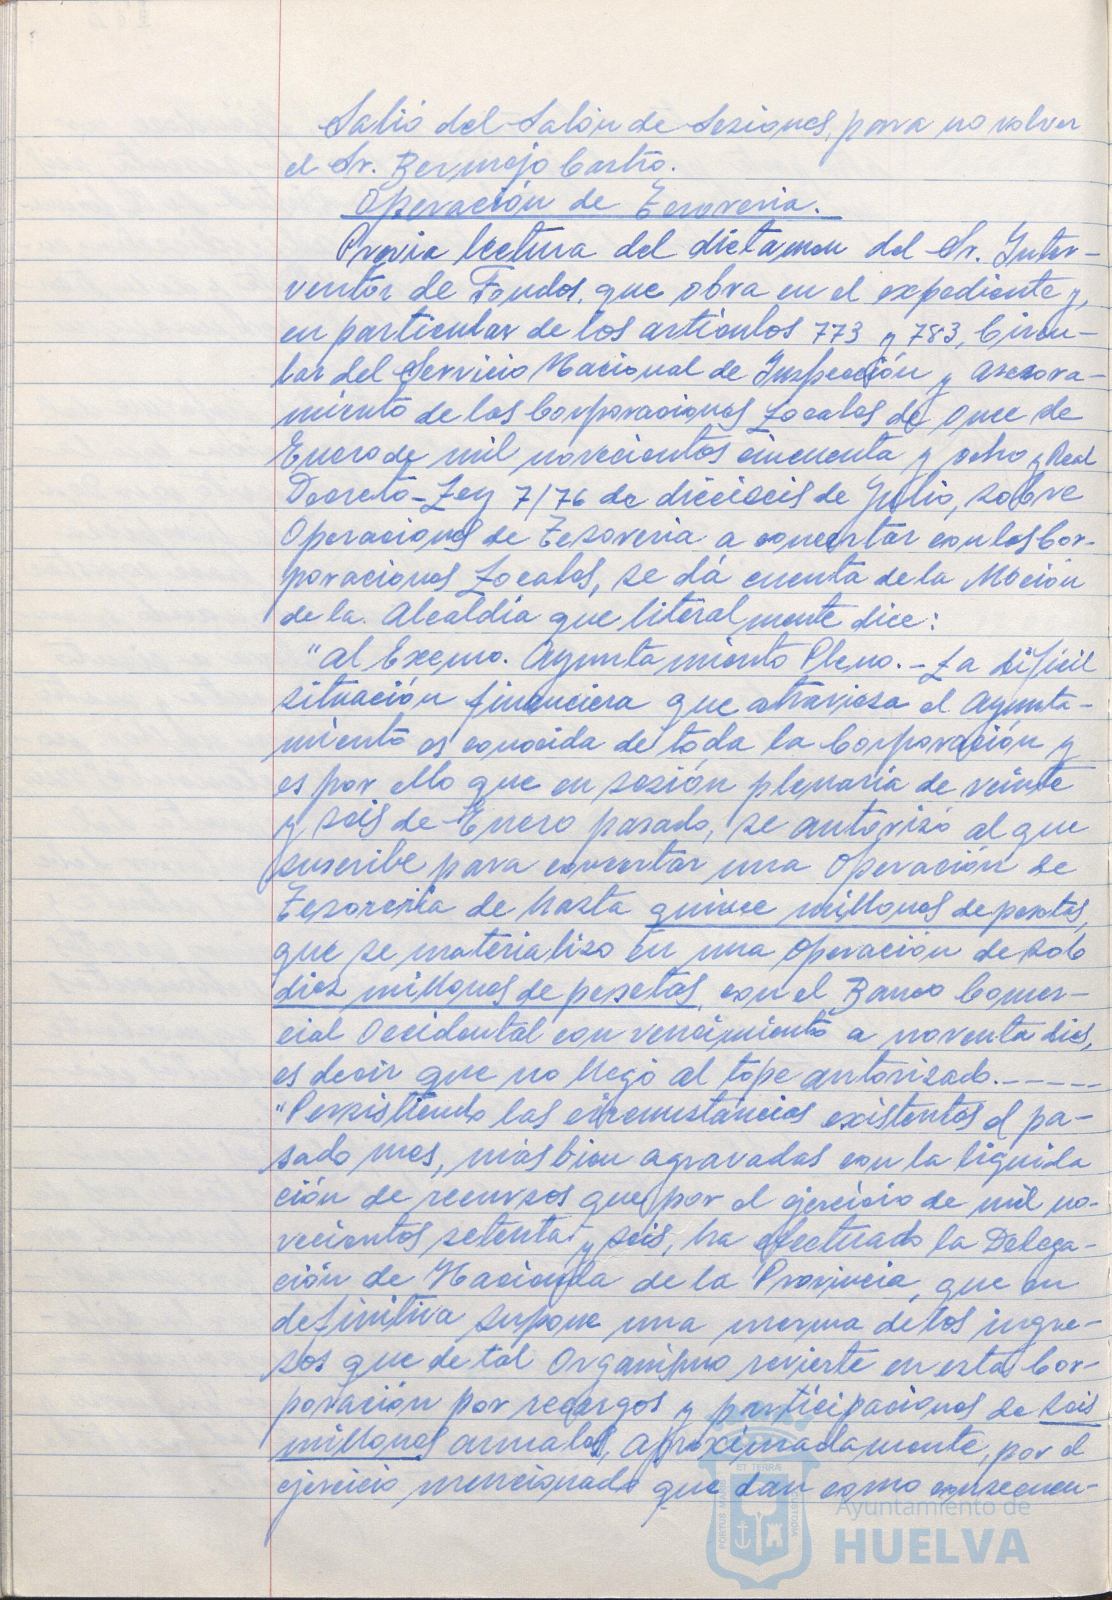 Salió del Salón de Sesiones, para no volver
el Sr. Bermejo Castro.
Operación de Tesorería.
Previa lectura del dictamen del Sr. Inter-
ventor de Fondos, que obra en el expediente y,
en particular de los artículos 773 y 783, Circu-
lar del Servicio Nacional de Inspección y asesora-
miento de las Corporaciones Locales de once de
Enero de mil novecientos cincuenta y ocho y Real
Decreto-Ley 7/76 de dieciseis de Julio, sobre
Operaciones de Tesorería a concertar con las Cor-
poraciones Locales, se dá cuenta de la Moción
de la Alcaldía que literalmente dice:
"Al Excmo. Ayuntamiento Pleno.- La difícil
situación financiera que atraviesa el Ayunta-
miento es conocida de toda la Corporación y
es por ello que en sesión plenaria de veinte
y seis de Enero pasado, se autorizó al que
suscribe para concertar una Operación de
Tesorería de hasta quince millones de pesetas,
que se materializo en una operación de solo
diez millones de pesetas, con el Banco Comer-
cial Occidental con vencimiento a noventa dias,
es decir que no llegó al tope autorizado.-----
"Persistiendo las circunstáncias existentes el pa-
sado mes, más bien agravadas con la liquida
ción de recursos que por el ejercicio de mil no-
vecientos setenta y seis, ha efectuado la Delega-
ción de Hacienda de la Provincia, que en
definitiva supone una merma de los ingre-
sos que de tal Organismo revierte en esta Cor-
poración por recargos y participaciones de seis
millones anuales, aproximadamente, por el
ejercicio mencionado que dan como consecuen-
PORTUS MARIS ET TERRAE CUSTODIA
Ayuntamiento de
HUELVA